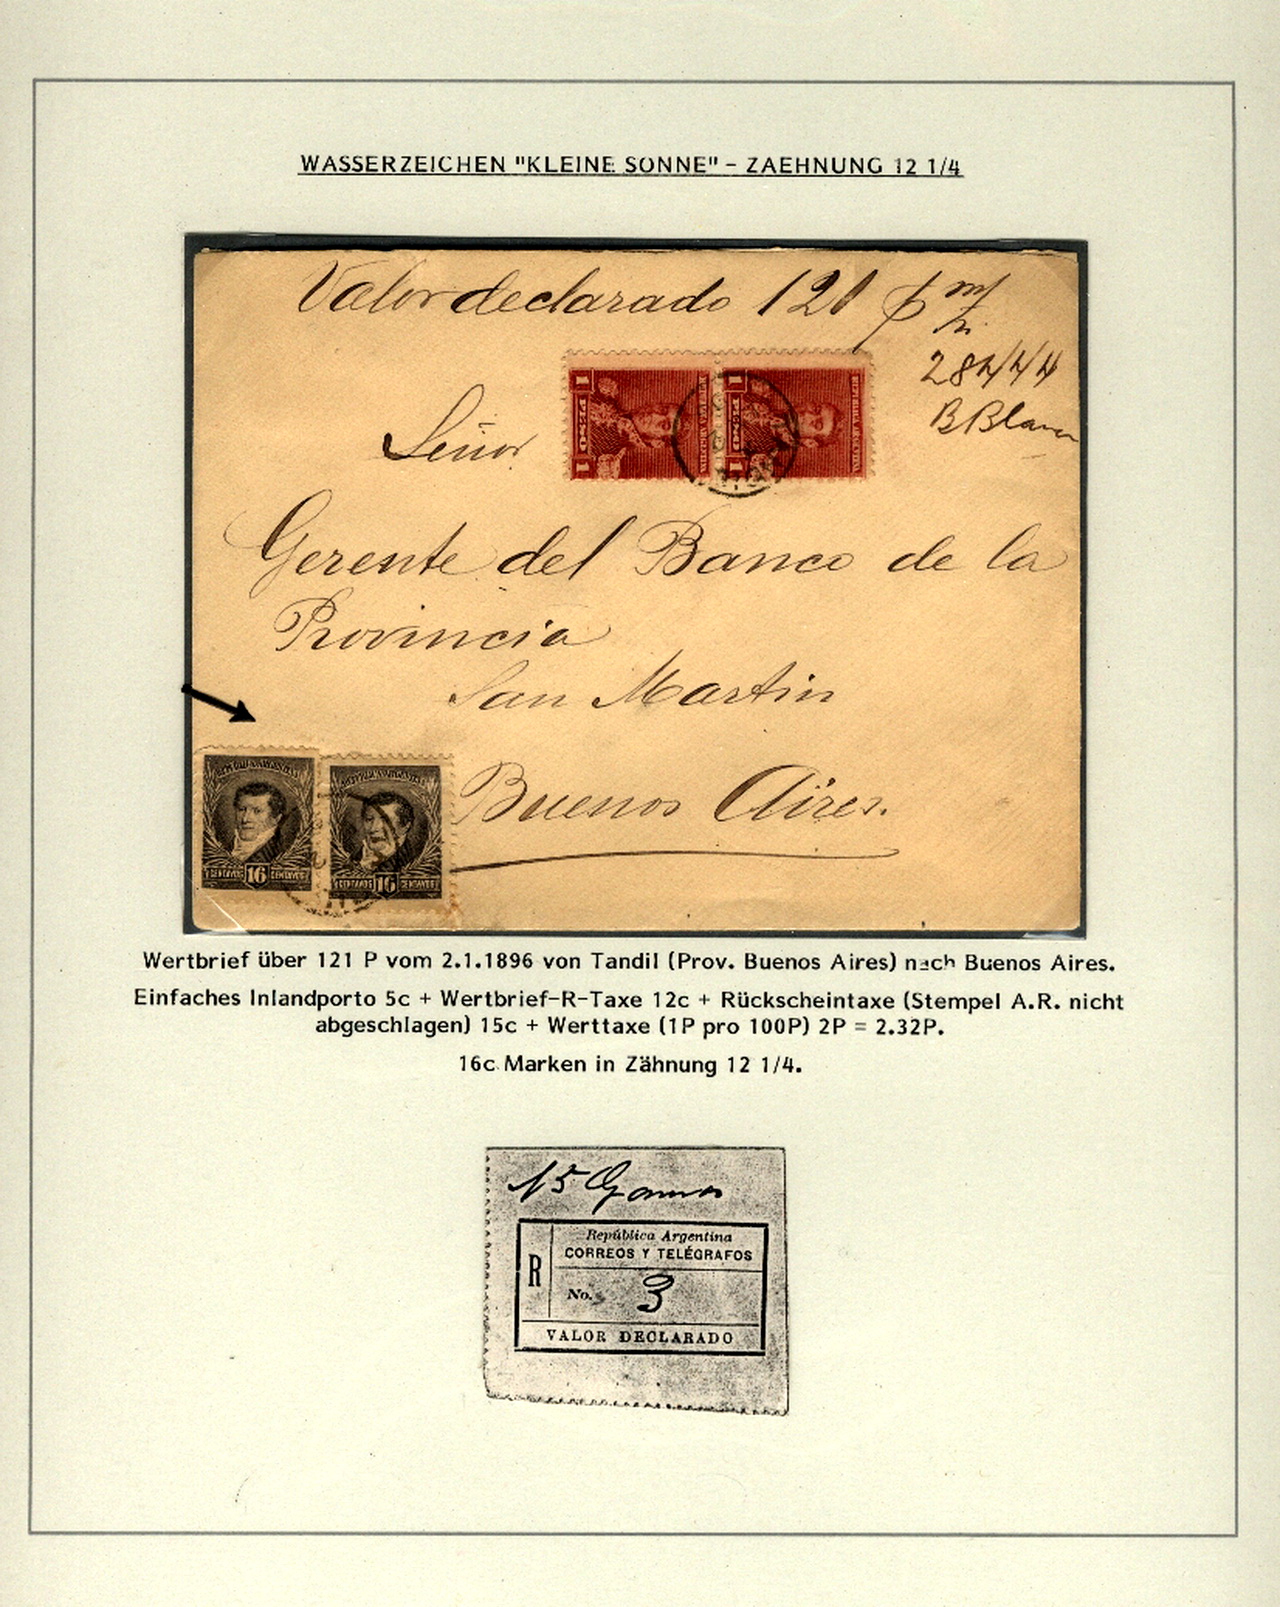 WASSERZEICHEN "KLEINE SONNE" - ZAEHNUNG 12 1/4
Valor declarado 121 $ m/n.
28444
B Blanca
Señor
1 PESO 1
1 PESO 1
REPUBLICA ARGENTINA
Gerente del Banco de la
Provincia
San Martin
Buenos Aires.
REPUBLICA ARGENTINA
REPUBLICA ARGENTINA
CENTAVOS 16 CENTAVOS
CENTAVOS 16 CENTAVOS
Wertbrief über 121 P vom 2.1.1896 von Tandil (Prov. Buenos Aires) nach Buenos Aires.
Einfaches Inlandporto 5c + Wertbrief-R-Taxe 12c + Rückscheintaxe (Stempel A.R. nicht
abgeschlagen) 15c + Werttaxe (1P pro 100P) 2P = 2.32P.
16c Marken in Zähnung 12 1/4.
15 Gramos
República Argentina
CORREOS Y TELÉGRAFOS
R
No. 3
VALOR DECLARADO